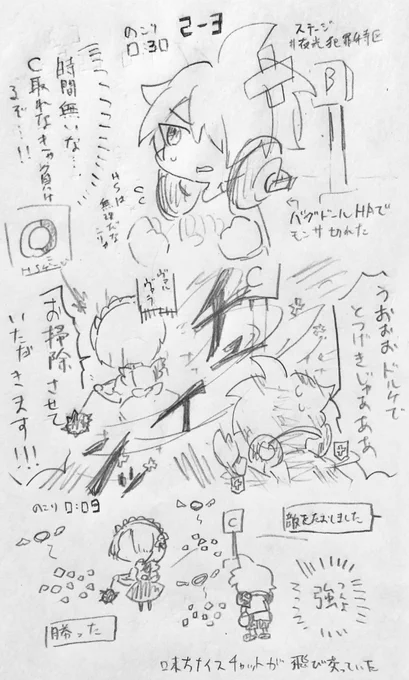 2-3
のこり
0:30
ステージ
#夜光犯罪特区
B
時間無いな…
C取れなきゃ負け
るぞ…!!
C
HSは
無理だな
こりゃ
←
バグドールHAで
モンサ切れた
C
うおおおドルケで
とつげきじゃあああ
お掃除させて
いただきます!!!
のこり 0:09
C
敵をたおしました
強
つんよ
勝った
味方ナイスチャットが 飛び交っていた